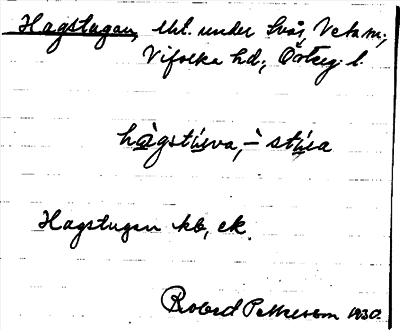 Hagstugan, lht. under Svås, Veta sn;
Vifolka hd; Östeg. l.
hàgstuva, -̀ stua
Hagstugan kb, ek.
Robert Pettersson 1930